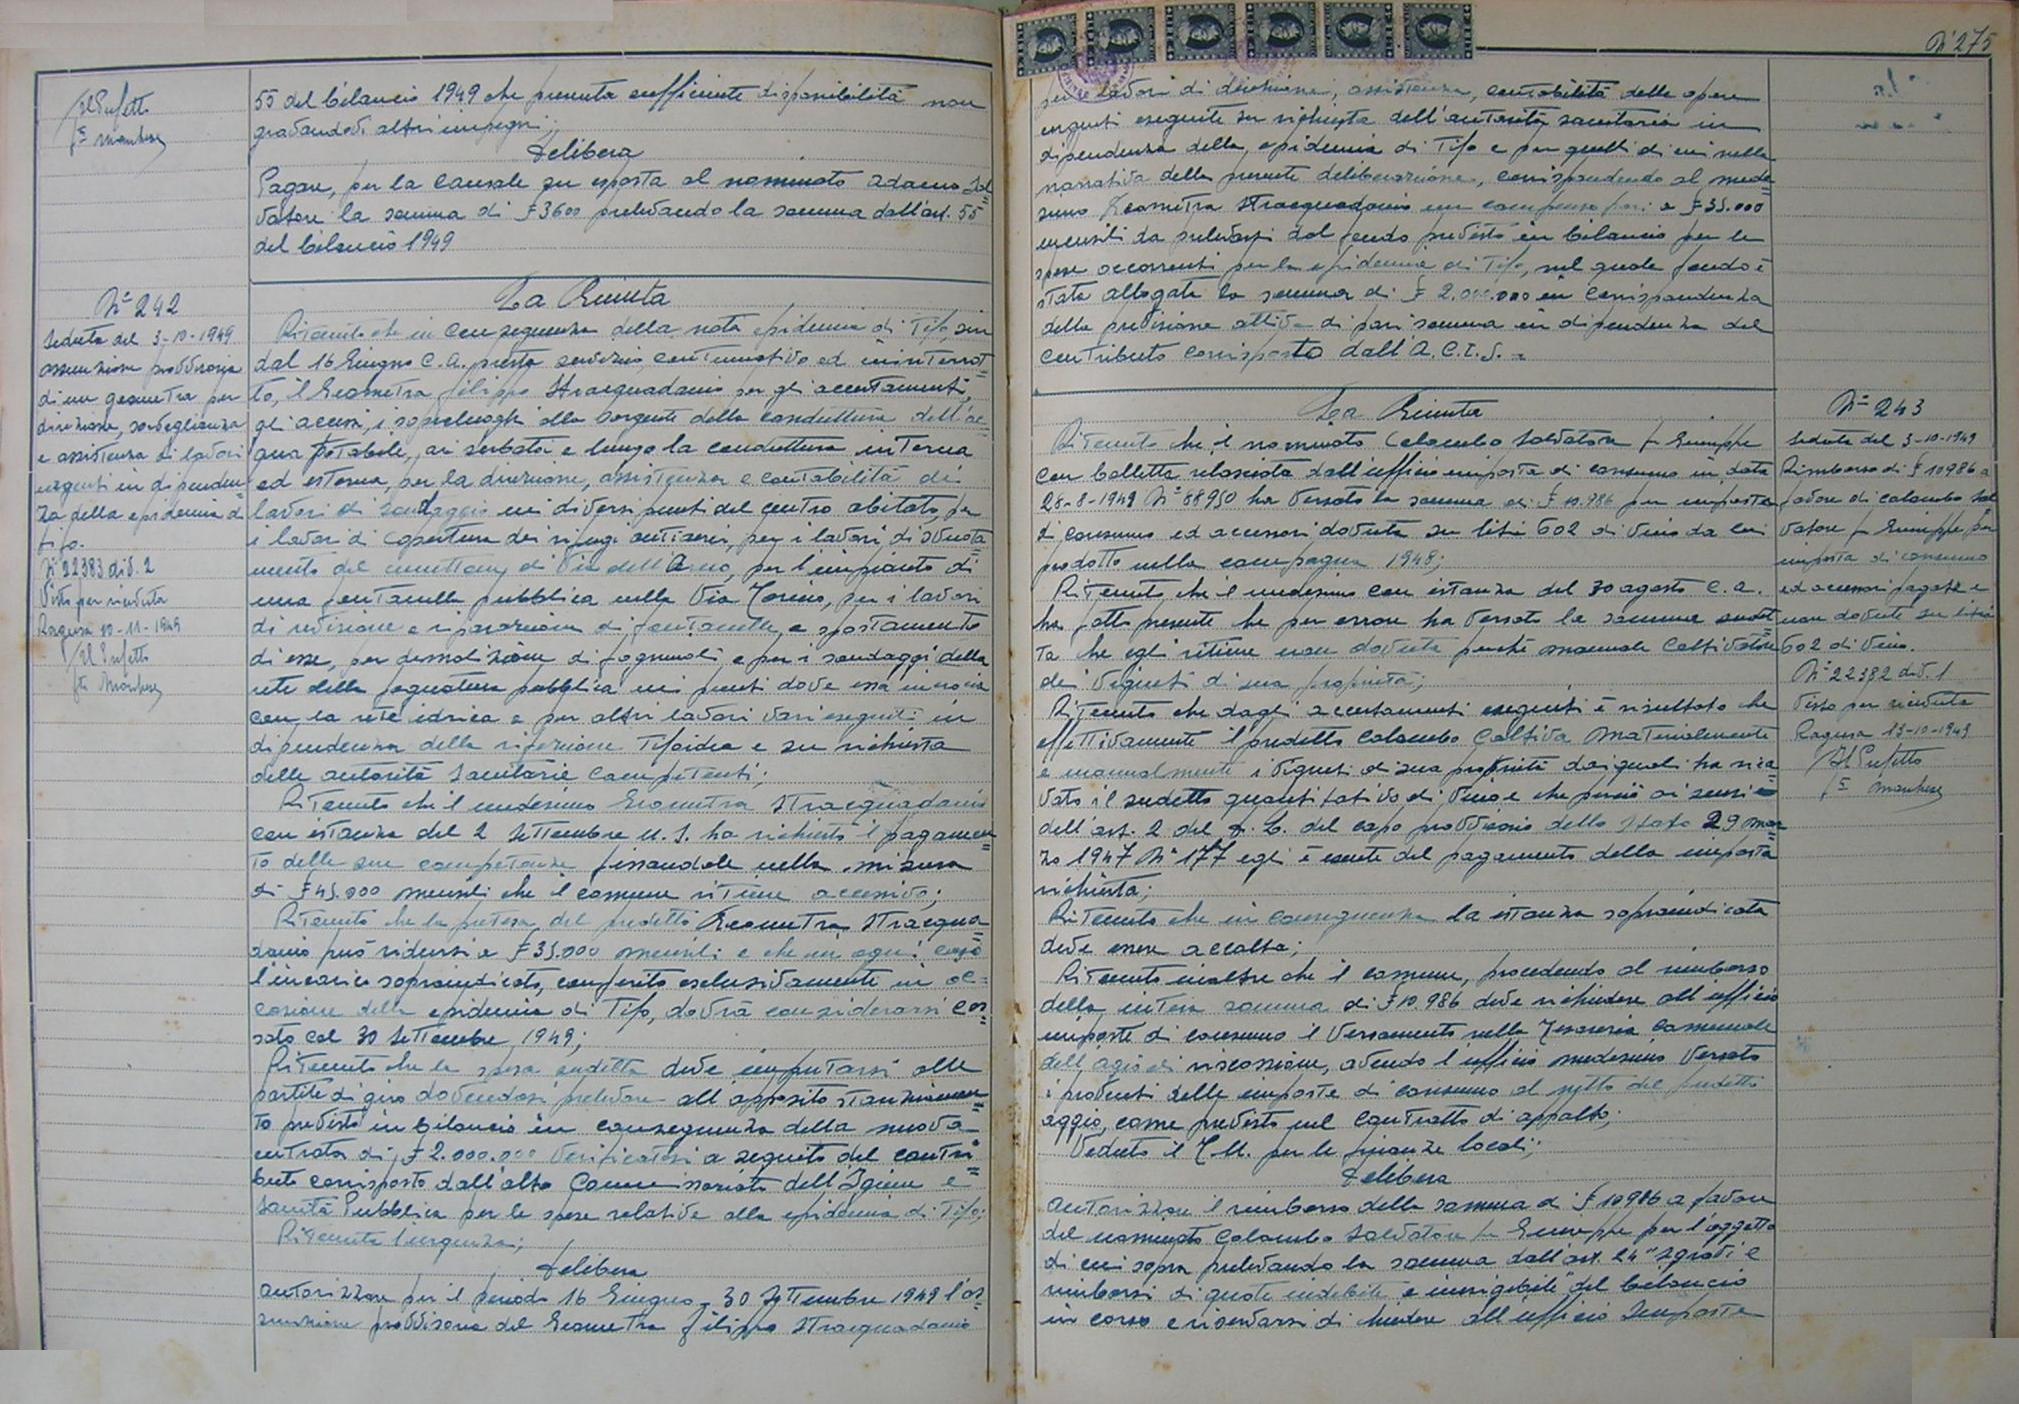 Il Prefetto
55 del bilancio 1949 che presenta sufficiente disponibilità non
gravandovi altri impegni;
Delibera
Pagare, per la causale su esposta al nominato Adamo Sal=
vatore la somma di £ 3600 prelevando la somma dall'art. 55
del bilancio 1949
N° 242
Seduta del 3-10-1949
assunzione provvisoria
di un geometra per
direzione, sorveglianza
e assistenza di lavori
urgenti in dipenden=
za della epidemia di
tifo.
N° 22383 div. 2
Visto per ricevuta
Ragusa 10-11-1949
Il Prefetto
La Giunta
Ritenuto che in conseguenza della nota epidemia di Tifo, sin
dal 16 Giugno c.a. presta servizio continuativo ed ininterrot=
to, il Geometra Filippo Stracquadanio per gli accertamenti,
gli accessi, i sopraluoghi alla sorgente della conduttura dell'ac=
qua potabile, ai serbatoi e lungo la conduttura interna
ed esterna, per la direzione, assistenza e contabilità dei
lavori di sondaggio in diversi punti del centro abitato, per
i lavori di copertura dei rifugi antiaerei, per i lavori di svuota=
mento del di Via dell'Arno, per l'impianto di
una fontanella pubblica nella Via Torino, per i lavori
di revisione e riparazione di fontanelle e spostamento
di esse, per demolizione di fognuoli e per i sondaggi della
rete della fognatura pubblica nei punti dove essa incrocia
con la rete idrica e per altri lavori vari eseguiti in
dipendenza della infezione Tifoidea e su richiesta
delle autorità Sanitarie Competenti;
Ritenuto che il medesimo Geometra Stracquadanio
con istanza del 2 Settembre U.S. ha richiesto il pagamen=
to delle sue competenze fissandole nella misura
di £ 45.000 mensili che il comune ritiene eccessivo;
Ritenuto che la pretesa del predetto Geometra Stracqua=
danio può ridursi a £ 35.000 mensili e che in ogni caso
l'incarico sopraindicato, conferito esclusivamente in oc=
casione della epidemia di Tifo, dovrà considerarsi ces=
sato col 30 Settembre 1949;
Ritenuto che la spesa sudetta deve imputarsi alle
partite di giro dovendosi prelevare all'apposito stanziamen=
to previsto in bilancio in conseguenza della nuova
entrata di £ 2.000.000 verificatasi a seguito del contri=
buto corrisposto dall'alto Commissariato dell'Igiene e
Sanità Pubblica per le spese relative alla epidemia di Tifo;
Ritenuta l'urgenza;
Delibera
Autorizzare per il periodo 16 Giugno - 30 Settembre 1949 l'as=
sunzione provvisoria del Geometra Filippo Stracquadanio
N° 275
per lavori di direzione, assistenza, contabilità delle opere
urgenti eseguite su richiesta dell'autorità sanitaria in
dipendenza della epidemia di Tifo e per quelli di cui nella
narrativa della presente deliberazione, corrispondendo al mede=
simo Geometra Stracquadanio un compenso pari a £ 35.000
mensili da prelevarsi dal fondo previsto in bilancio per le
spese occorrenti per la epidemia di Tifo, nel quale fondo è
stata allogata la somma di £ 2.000.000 in corrispondenza
della previsione attiva di pari somma in dipendenza del
contributo corrisposto dall'A.C.I.S. =
La Giunta
Ritenuto che il nominato Colombo Salvatore fu Giuseppe
con bolletta rilasciata dall'ufficio imposte di consumo in data
28-8-1949 N° 88950 ha versato la somma di £ 10.986 per imposta
di consumo ed accessori dovuta su litri 602 di vino da lui
prodotto nella campagna 1948;
Ritenuto che il medesimo con istanza del 30 agosto c.a.
ha fatto presente che per errore ha versato la somma sudet=
ta che egli ritiene non dovuta perchè manuale Coltivatore
dei vigneti di sua proprietà;
Ritenuto che dagli accertamenti eseguiti è risultato che
effettivamente il predetto Colombo coltiva materialmente
e manualmente i vigneti di sua proprietà dai quali ha rica=
vato il sudetto quantitativo di vino e che perciò ai sensi
dell'art. 2 del D.L. del capo provvisorio dello Stato 29 mar=
zo 1947 N° 177 egli è esente del pagamento della imposta
richiesta;
Ritenuto che in conseguenza la istanza sopraindicata
deve essere accolta;
Ritenuto inoltre che il comune, procedendo al rimborso
della intera somma di £ 10.986 deve richiedere all'ufficio
imposte di consumo il versamento nella Tesoreria Comunale
dell'agio di riscossione, avendo l'ufficio medesimo versato
i proventi delle imposte di consumo al netto del predetto
aggio, come previsto nel contratto di appalto;
Veduto il T.U. per le finanze locali;
Delibera
Autorizzare il rimborso della somma di £ 10986 a favore
del nominato Colombo Salvatore fu Giuseppe per l'oggetto
di cui sopra prelevando la somma dall'art. 24 "Sgravi e
rimborsi di quote indebite e inesigibili" del bilancio
in corso e riservarsi di chiedere all'ufficio Imposte
N° 243
Seduta del 3-10-1949
Rimborso di £ 10986 a
favore di Colombo Sal
vatore fu Giuseppe per
imposta di consumo
ed accessori pagate e
non dovute su litri
602 di vino.
N° 22382 div. 1
Visto per ricevuta
Ragusa 13-10-1949
Il Prefetto